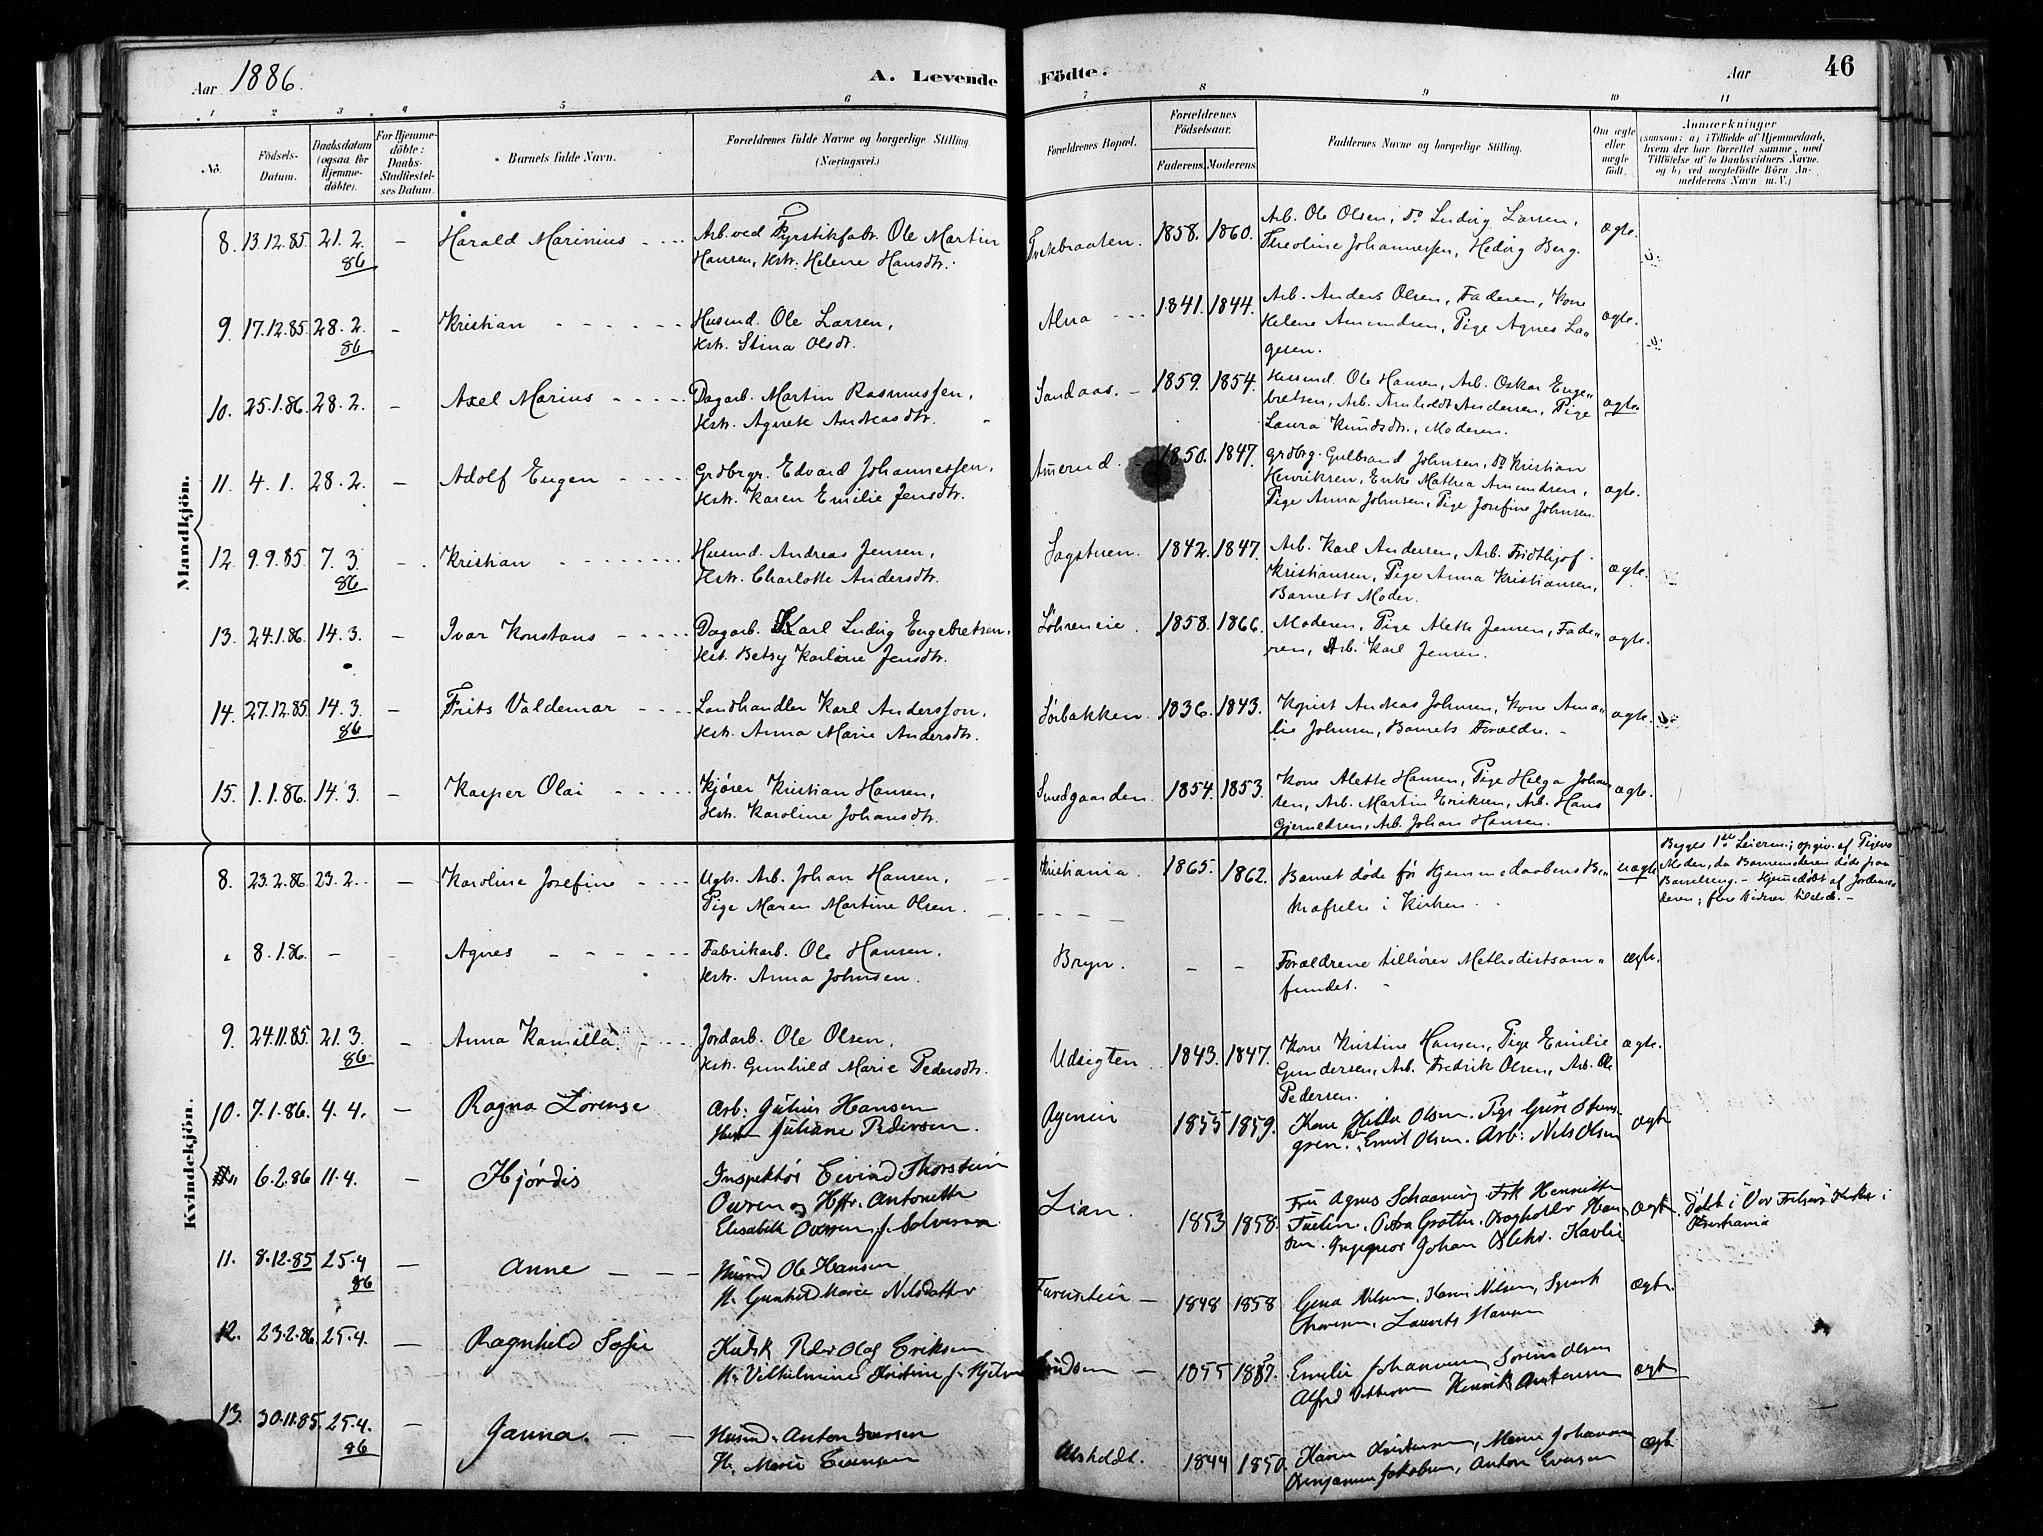 Aar 1886. A. Levende Födte. Aar 46
1 2 3 4 5 6 7 8 9 10 11
No.
Födsels-Datum.
Daabsdatum (ogsaa for Hjemme-döbte).
For Hjemme-döbte: Daabs-Stadfæstel-ses Datum.
Barnets fulde Navn.
Forældrenes fulde Navne og borgerlige Stilling. (Næringsvei.)
Forældrenes Bopæl.
Forældrenes Födselsaar.
Faderens. Moderens.
Faddernes Navne og borgerlige Stilling.
Om ægte eller uægte födt.
Anmærkninger
(saasom: a) i Tilfælde af Hjemmedaab,
hvem der har forrettet samme, med
Tilföielse af to Daabsvidners Navne.
og b) ved uægtefödte Börn An-
melderens Navn m. V.)
Mandkjön.
8. 13.12.85. 21.2. – Harald Marinius Arb. ved Fyrstikfabr. Ole Martin Tvetebraaten. 1858. 1860. Arb. Ole Olsen, Do Ludvig Larsen, ægte.
86 Hansen, Hstr. Helene Hansdtr. Theoline Johannessen, Hedvig Berg.
9. 17.12.85. 28.2. – Kristian Husmd. Ole Larsen, Alna 1841. 1844. Arb. Anders Olsen, Faderen, Kone ægte.
86 Hstr. Stina Olsdt. Helene Amundsen, Pige Agnes La-
gesen.
10. 25.1.86. 28.2. – Axel Marius Dagarb. Martin Rasmussen, Sandaas. 1859. 1854. Husmd. Ole Hansen, Arb. Oskar Enge- ægte
Hstr. Agnete Andreasdtr. bretsen, Arb. Arnholdt Andersen, Pige
Laura Knudsdtr., Moderen.
11. 4.1. 28.2. – Adolf Eugen Grdbrgr. Edvard Johannessen, 1850. 1847. Grdbrg. Gulbrand Johnsen, Do Kristian ægte.
Hstr. Karen Emilie Jensdtr. Henriksen, Enke Mathea Amundsen,
Pige Anna Johnsen, Pige Josefine Johnsen.
12. 9.9.85 7.3. – Kristian Husmd. Andreas Jensen, Sagstuen. 1842. 1847. Arb. Karl Andersen, Arb. Fridthjof ægte.
86 Hstr. Charlotte Andersdtr. Kristiansen, Pige Anna Kristiansen,
Barnets Moder.
13. 24.1.86. 14.3. – Ivar Konstans Dagarb. Karl Ludvig Engebretsen, Løhreneie. 1858. 1866. Moderen, Pige Alette Jensen, Fade- ægte.
Hst. Betsy Karline Jensdtr. ren, Arb. Karl Jensen.
14. 27.12.85. 14.3. – Frits Valdemar Landhandler Karl Andersson, Sørbakken. 1836. 1843. Kopist Andreas Johnsen, Kone Ama- ægte.
86 Hstr. Anna Marie Andersdtr. lie Johnsen, Barnets Forældre. –
15. 1.1.86. 14.3. – Kasper Olai Kjører Kristian Hansen, Smedgaarden. 1854. 1853. Kone Alette Hansen, Pige Helga Johan- ægte.
Hstr. Karoline Johansdtr. sen, Arb. Martin Eriksen, Arb. Hans
Gjeruldsen, Arb. Johan Hansen.
Kvindekjön.
8. 23.2.86. 23.2. – Karoline Josefine Ugk. Arb. Johan Hansen, Kristiania. 1865. 1862. Barnet døde før Hjemmedaabens Be- uægte
Pige Maren Martine Olsen. kræftelse i Kirken.
Begges 1ste Leierm.; opgiv. af Pigens
Moder, da Barnemoderen døde fra
Barselseng. – Hjemmedøbt af Jordemo-
deren; flere Vidner tilstede. –
8.1.86. – Agnes Fabrikarb. Ole Hansen, Bryn. – – Forældrene tilhører Methodistsam- ægte.
Hstr. Anna Johnsen. fundet.
9. 24.11.85. 21.3. – Anna Kamilla Jordarb. Ole Olsen, Udsigten 1843. 1847. Kone Kristine Hansen, Pige Emilie ægte.
86 Hstr. Gunhild Marie Pedersdtr. Gundersen, Arb. Fredrik Olsen, Arb. Ole
Pedersen.
10. 7.1.86. 4.4. – Ragna Lorense Arb: Julius Hansen 1855 1859. Kone Helda Olsen. Pige ægte
Juliane Pedersen. Emil Olsen. Arb: Nils Olsen
6.2.86 11.4. – Hjørdis Inspektør Eivind Thorstein Lian. 1853 1858. Fru Agnes Schaaning. Frk Henriette ægte. Døbt i Vor Frelsers Kirke i
Oversen og Hstr. Antonette Petra Grothe. Kristiania
Elisabeth Oversen, f. Ingeniør Johan
11. 8.12.85 25.4 – Anne Husmd Ole Hansen 1848 1858 Gina Nilsen, Karen Nilsen, ægte
86 H. Gunhild Marie Nilsdatter Laurits Hansen
12. 23.2.86 25.4. – Ragnhild Sofie Kudsk Peder Olaf Eriksen 1855 Emilie Johannesen Søren Olsen ægte
H: Vilhelmine Kristine f. Alfred Henrik Andersen
13. 30.11.85. 25.4. – Janna. Husmd. Anton Iversen 1844 1850. Karen Kristensen, Marie Johansen ægte
86 H. Marie Evensen Benjamin Jakobsen, Anton Evensen